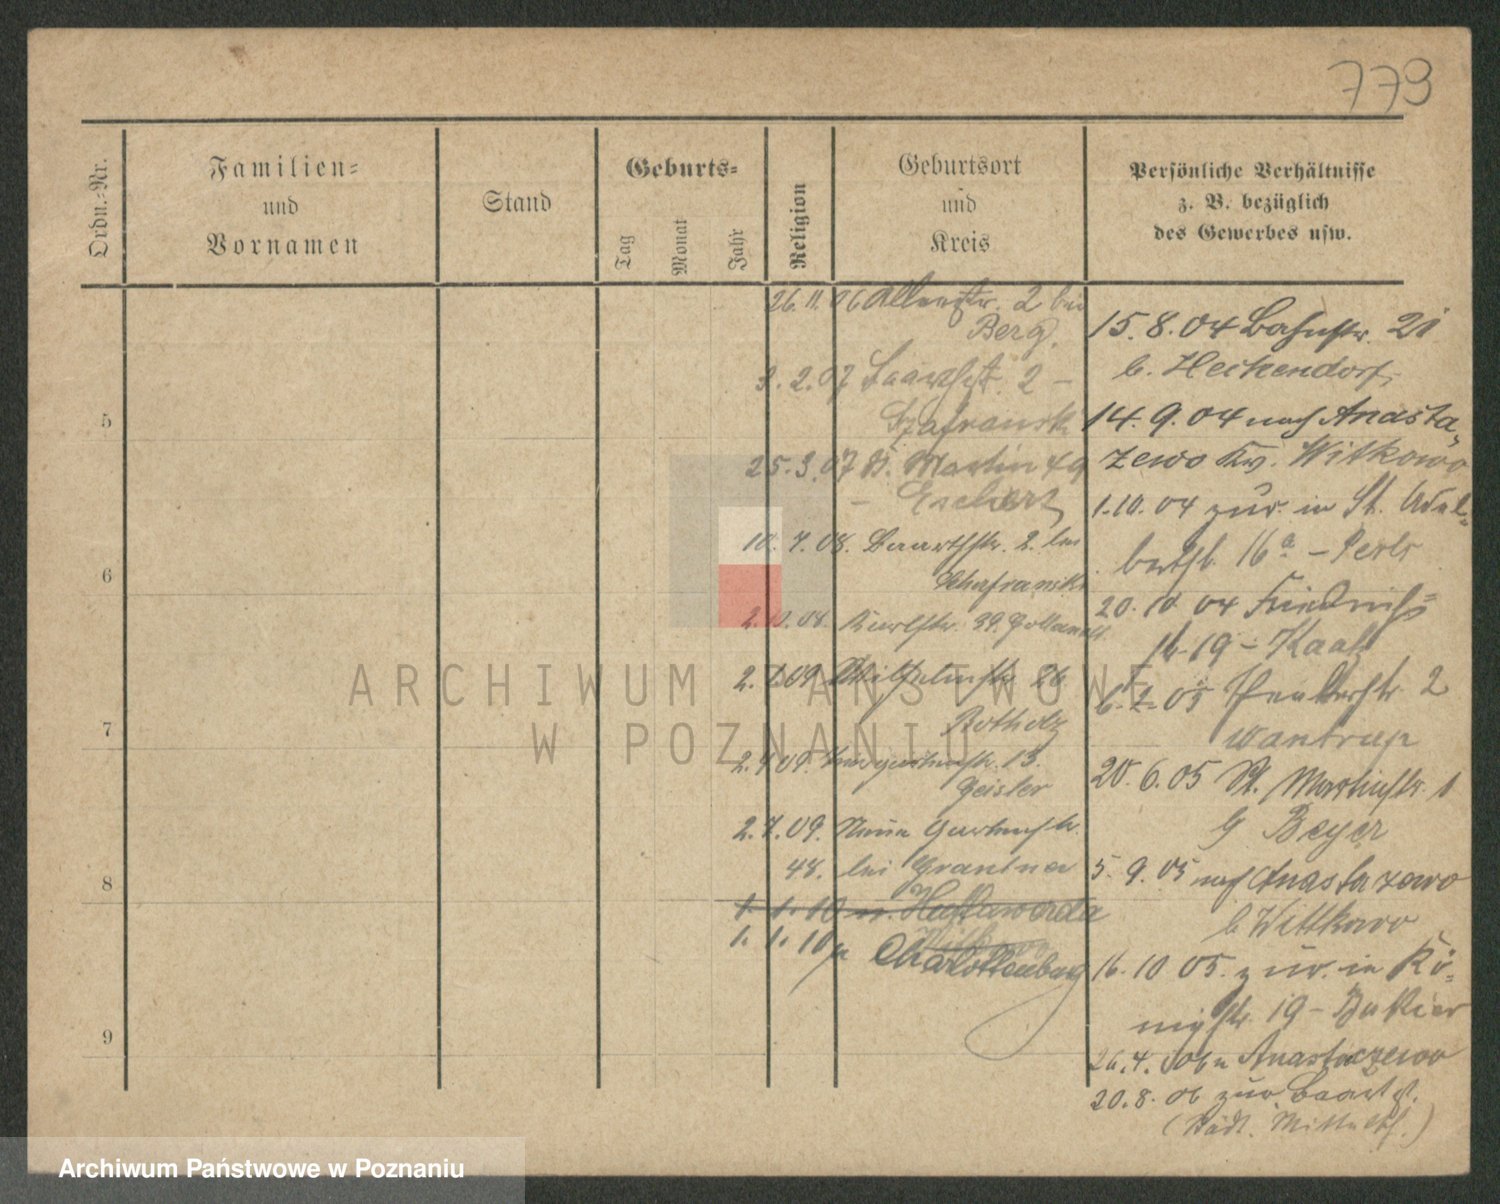 779
Ordn.-Nr.
Familien-
und
Vornamen
Stand
Geburts-
Tag
Monat
Jahr
Religion
Geburtsort
und
Kreis
Persönliche Verhältnisse
z. B. bezüglich
des Gewerbes usw.
5
6
7
8
9
26.11.06 2 bei
Berg.
3.2.07 2 –
Szafransk
25.3.07 St. Martin 49
– Eschert
10.7.08. Baarthstr. 2. bei
Schafranski
2.10.08. Karlstr. 39.
2. 09 Wilhelmstr. 26
Rotholz
2.4.09. 13.
Geister
2.7.09. Neue Gartenstr.
48. bei Grantner
1.1.10 n.
1.1.10 n Charlottenburg
15.8.04 Bahnstr. 21
b. Heckendorf
14.9.04 nach Anasta-
zewo Kr. Witkowo
1.10.04 zur. in St. Adal-
bertstr. 16a –
20.10 04 Friedrichs
16-19 – Kaatz
6.2.05 2
Wantrup
20.6.05 St. Martinstr. 1
Beyer
5.9.05 nach Anastazewo
b Wittkowo
16.10 05. zur. in Kö-
nigstr. 19 –
26.4. 06 n Anastazewo
20.8.06 zur. Baarthst.
(Städt. )
ARCHIWUM PAŃSTWOWE
W POZNANIU
Archiwum Państwowe w Poznaniu